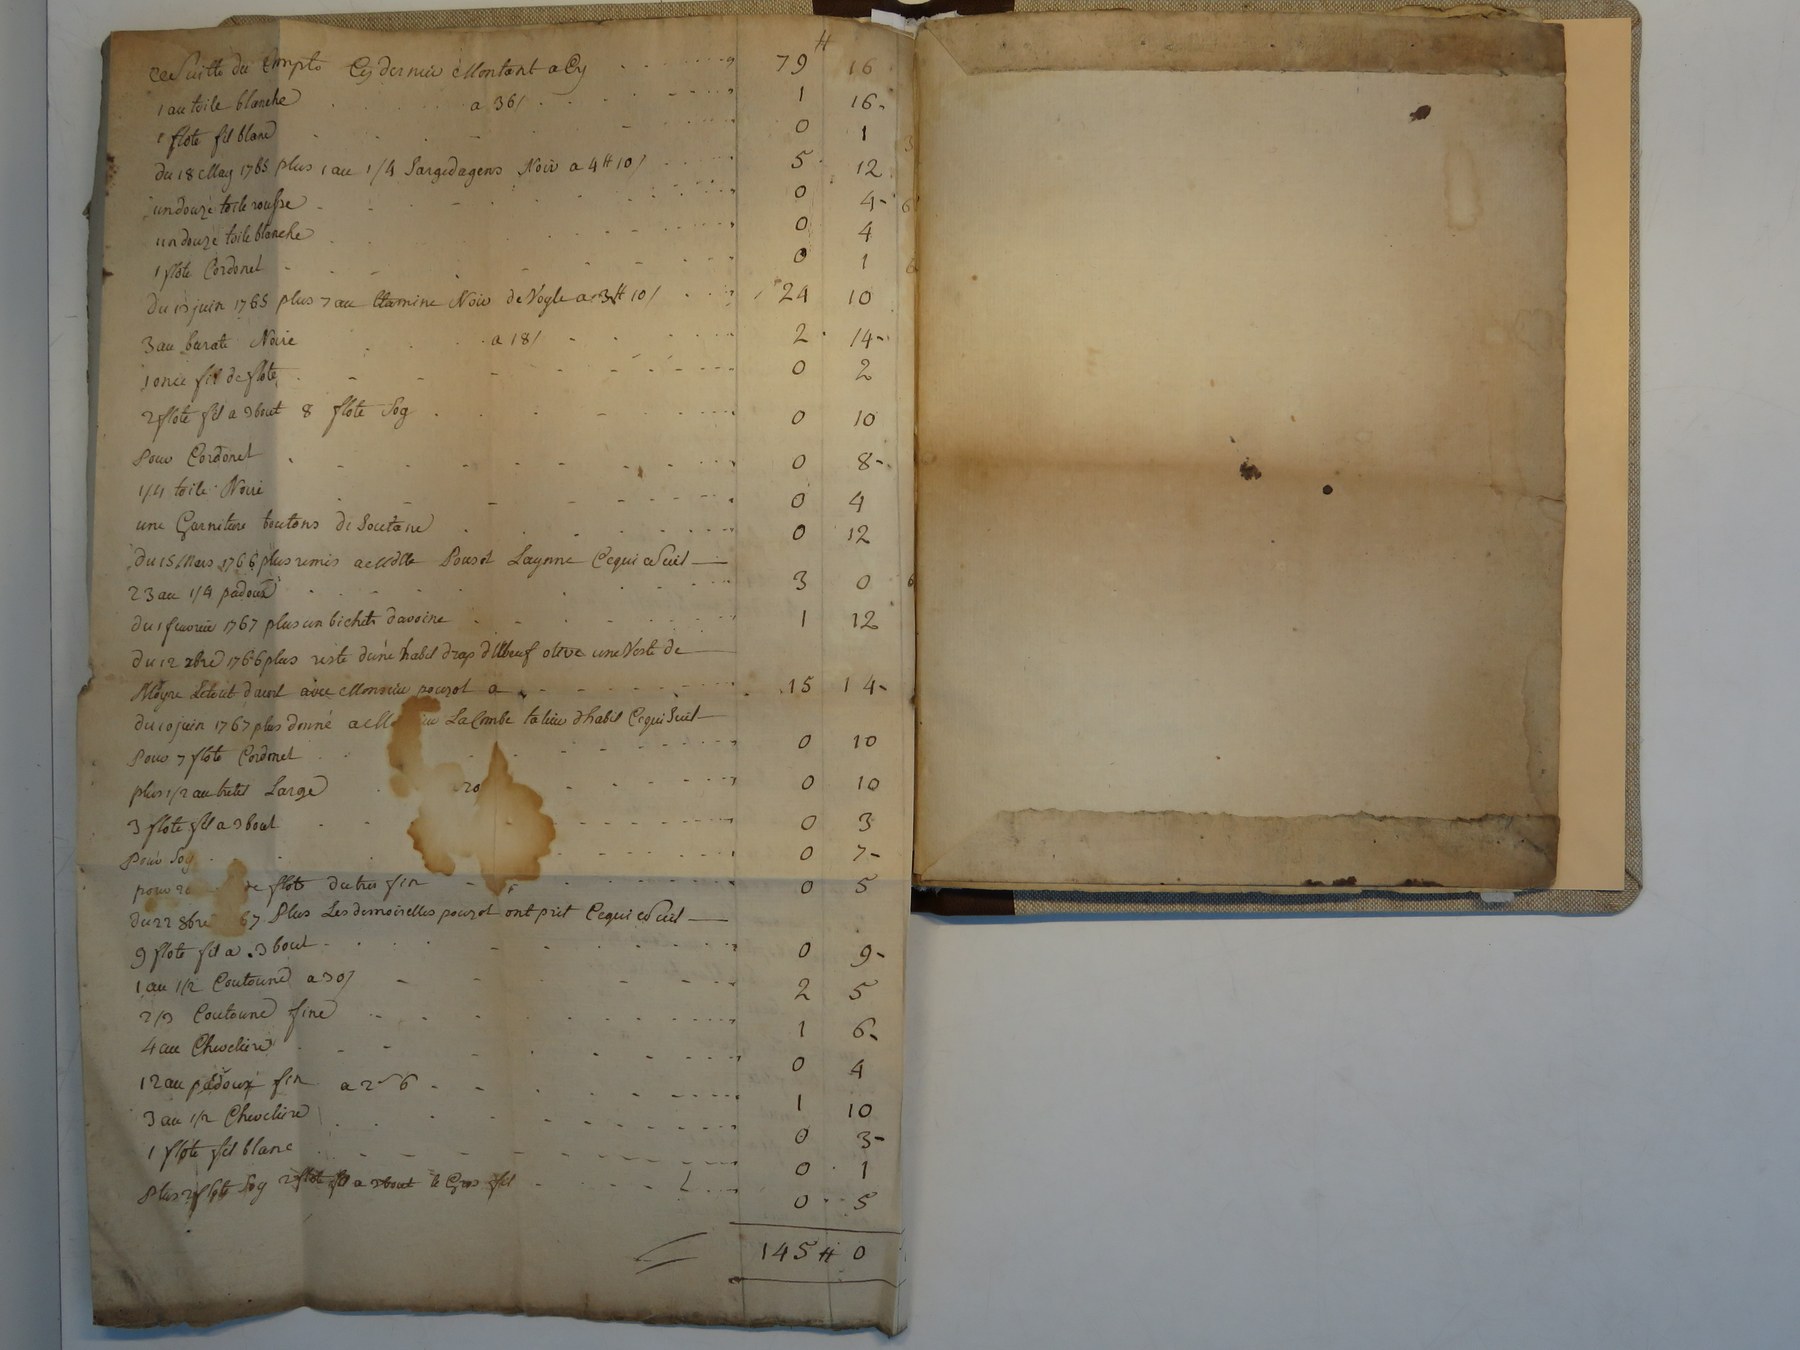 Ce Suitte du Compte Cy dernié Montant a Cy 79 ₶ 16
1 au toile blanche a 36/ 1 16-
1 flote fil blanc 0 1 3
du 18 May 1765 plus 1 au 1/4 Sargedagens Noir a 4₶10/ 5 12
un douze toile rousse 0 4- 6
un douze toile blanche 0 4
1 flote Cordonet 0 1 6
juin 1765 plus 7 au Etamine Noir de Vogle a 3₶10/ 24 10
3 au burate Noire a 18/ 2 14-
1 once fil de flote 0 2
2 flote fil a 3 bout 8 flote Soy 0 10
Pour Cordonet 0 8-
1/4 toile Noire 0 4
une Garniture boutons de Soutane 0 12
du 15 Mars 1766 plus remis a Mdlle Pouzol Laynne Cequi a Suit
23 au 1/4 padoux 3 0 6
du 1 fevrier 1767 plus un bichet davoine 1 12
du 12 xbre 1766 plus reste dune habit drap dElbeuf olive une Veste de
Letout avec Monsieur pouzol a 15 14-
du 10 juin 1767 plus donné a LaCombe talieur dhabit Cequi Suit
Pour 7 flote Cordonet 0 10
plus 1/2 au tretes Large 20 0 10
3 flote fil a 3 bout 0 3
Pour Soy 0 7-
pour de flote du tres fin 0 5
du 22 8bre 67 Plus Les demoiselles pouzol ont prit Cequi a Suit
9 flote fil a 3 bout 0 9-
1 au 1/2 Coutoune a 30/ 2 5
2/3 Coutoune fine 1 6-
4 au Cheveliere 0 4
12 au padoux fin a 2 6 1 10
3 au 1/2 Cheveliere 0 3-
1 flote fil blanc 0 1
Plus 2 flote Soy 2 flote fil a 3 bout le Gros fil 0 5
145 ₶ 0